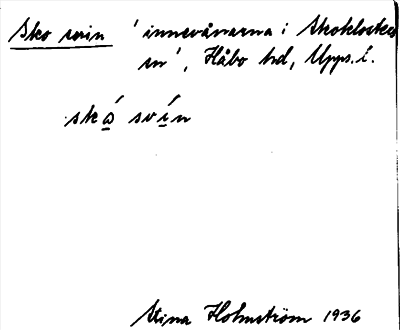 Sko svin 'innevånarna i Skokloster
sn', Håbo hd, Upps. l.
skó̱ sví̱n
Stina Holmström 1936